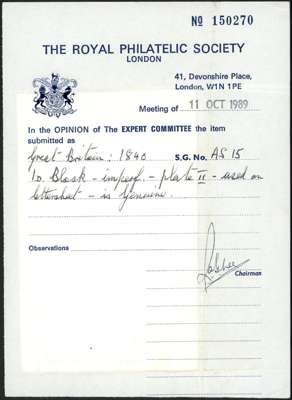 No 150270
THE ROYAL PHILATELIC SOCIETY
LONDON
41, Devonshire Place,
London, W1N 1PE
Meeting of 11 OCT 1989
In the OPINION of The EXPERT COMMITTEE the item
submitted as
Great Britain: 1840 S.G. No. AS 15
1d. Black - imperf. - plate II - used on
lettersheet - is genuine.
Observations
Chairman